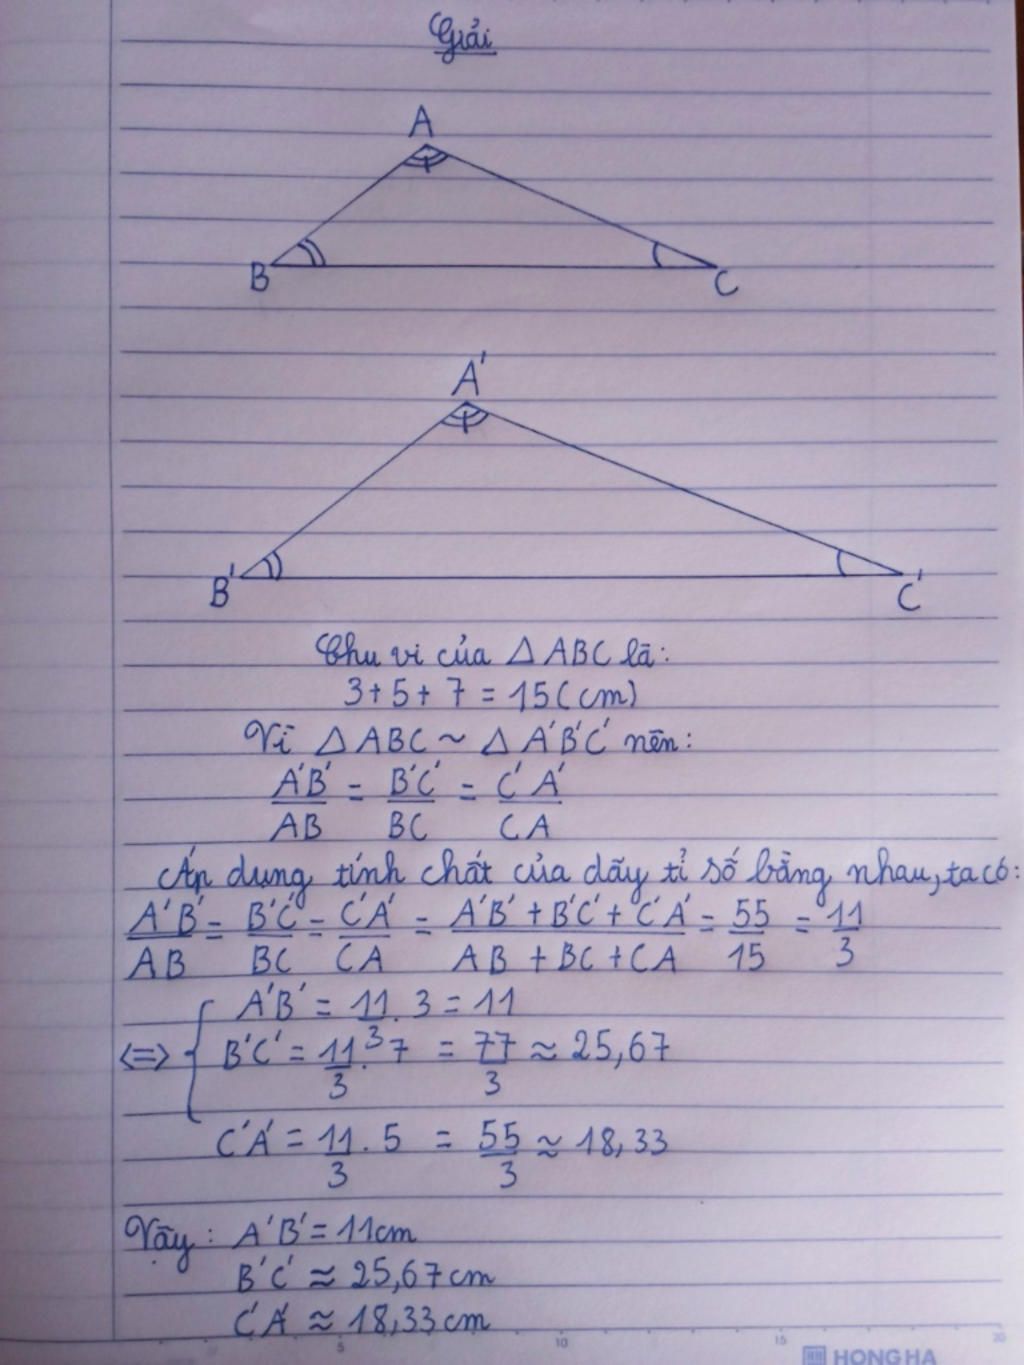 Giải
A
B
C
A'
B'
C'
Chu vi của △ABC là:
3+5+7 = 15(cm)
Vì △ABC ~ △A'B'C' nên:
A'B'/AB = B'C'/BC = C'A'/CA
Áp dụng tính chất của dãy tỉ số bằng nhau, ta có:
A'B'/AB = B'C'/BC = C'A'/CA = A'B'+B'C'+C'A'/AB+BC+CA = 55/15 = 11/3
A'B' = 11/3 . 3 = 11
<=> { B'C' = 11/3 . 7 = 77/3 ≈ 25,67
C'A' = 11/3 . 5 = 55/3 ≈ 18,33
Vậy: A'B' = 11cm
B'C' ≈ 25,67cm
C'A' ≈ 18,33cm
5 10 15 20
HONG HA